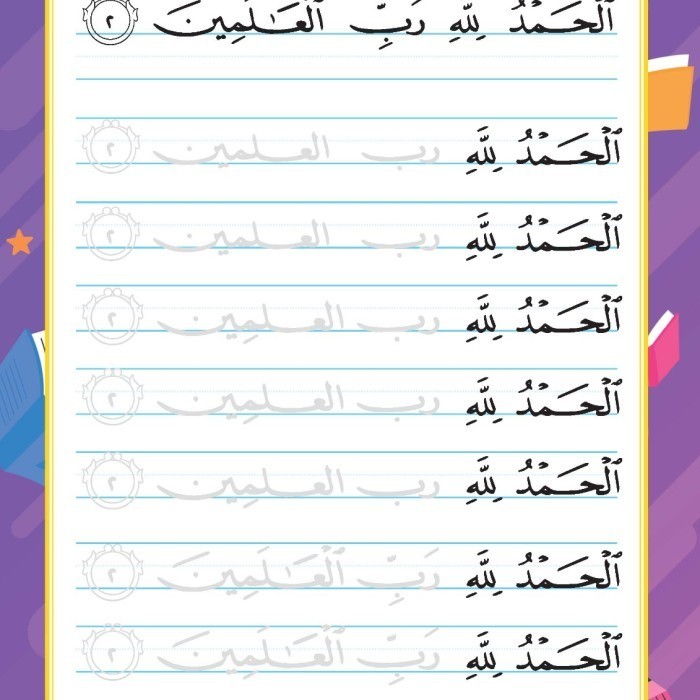 ٱلۡحَمۡدُ لِلَّهِ رَبِّ ٱلۡعَٰلَمِينَ ٢
ٱلۡحَمۡدُ لِلَّهِ رب العلمين ٢
ٱلۡحَمۡدُ لِلَّهِ رب العلمين ٢
ٱلۡحَمۡدُ لِلَّهِ رب العلمين ٢
ٱلۡحَمۡدُ لِلَّهِ رب العلمين ٢
ٱلۡحَمۡدُ لِلَّهِ رب العلمين ٢
ٱلۡحَمۡدُ لِلَّهِ رَبِّ ٱلۡعَٰلَمِينَ ٢
ٱلۡحَمۡدُ لِلَّهِ رَبِّ ٱلۡعَٰلَمِينَ ٢